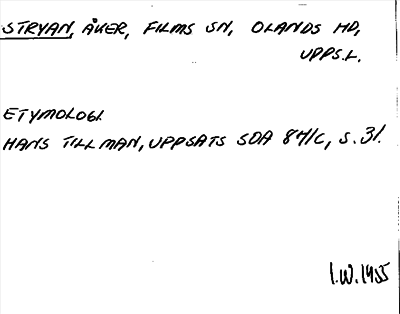 STRYAN, ÅKER, FILMS SN, OLANDS HD,
UPPS.L.
ETYMOLOGI.
HANS TILLMAN, UPPSATS SOA 87/C, S. 31.
I.W. 1955